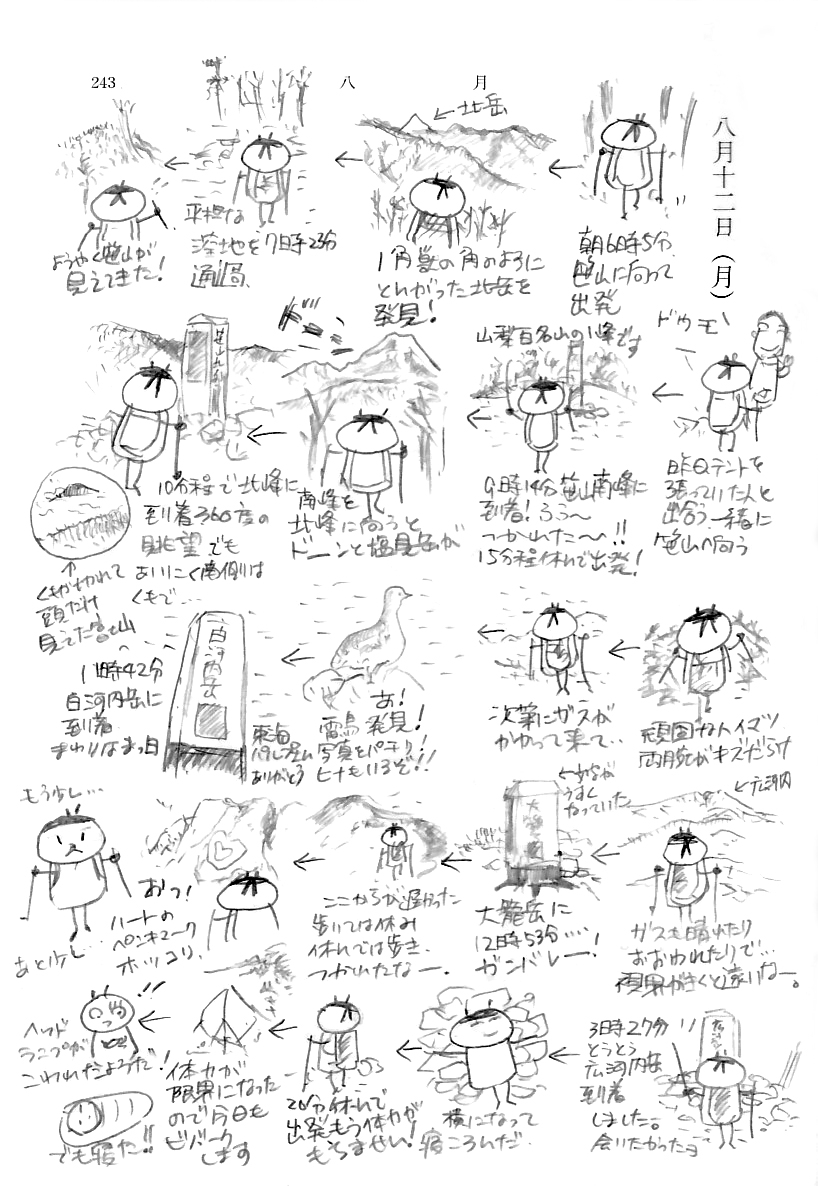 243
八
月
八月十二日（月）
朝6時5分
笹山に向って
出発
←北岳
1角獣の角のように
とんがった北岳を
発見！
平担な
湿地を7時23分
通過、
ようやく笹山が
見えてきた！
ドウモ〜
昨日テントを
張っていた人と
出合う、一緒に
笹山へ向う
山梨百名山の1峰です
9時14分笹山南峰に
到着！ふぅ〜
つかれた〜〜!!
15分程休んで出発！
ドーン
南峰を
北峰に向うと
ドーンと塩見岳が
10分程で北峰に
到着360度の
眺望でも
あいにく南側は
くもで…
くもが切れて
頭だけ
見えてた富士山
頑固なハイマツ
両腕がキズだらけ
次第にガスが
かかって来て…
あ！
雷鳥発見！
写真をパチリ！
ヒナもいるぞ!!
白河内岳
11時42分
白河内岳に
到着
まわりはまっ白
ありがとう
←広河内
ガスも晴れたり
おおわれたりで…
視界がきくと遠いなー。
うすく
なっていた
大籠岳
大籠岳に
12時53分…
ガンバレー！
ここからが遠かった
歩いては休み
休んでは歩き、
つかれたなー、
おっ！
ハートの
ペンキマーク
ホッコリ、
もう少し…
あと少し…
3時27分
とうとう
広河内岳
到着
しました。
会いたかったヨ
横になって
寝ころんだ
20分休んで
出発もう体力が
もちません！
体力が
限界になった
ので今日も
ビバーク
します
!!
ヘッド
ランプが
こわれたようだ！
でも寝た!!